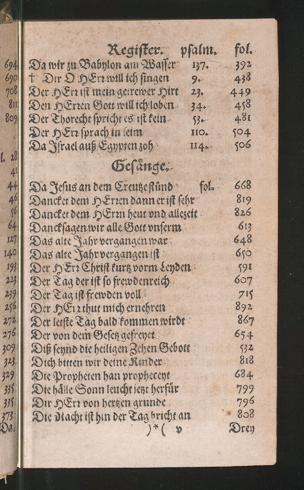 Register. psalm. fol.
Da wir zu Babylon am Wasser 137. 392
† Dir O HErr will ich singen 9. 438
Der HErr ist mein getrewer Hirt 23. 449
Den HErren Gott will ich loben 34. 458
Der Thorecht spricht es ist kein 53. 481
Der HErr sprach in seim 110. 504
Da Jsrael auß Egypten zoh 114. 506
Gesänge.
Da Jesus an dem Creutze stünd fol. 668
Dancket dem HErren dann er ist sehr 819
Dancket dem HErrn heut vnd allezeit 826
Dancksagen wir alle Gott vnserm 613
Das alte Jahr vergangen war 648
Das alte Jahr vergangen ist 650
Der HErr Christ kurtz vorm Leyden 591
Der Tag der ist so frewdenreich 607
Der Tag ist frewden voll 715
Der HErr thut mich ernehren 892
Der letste Tag bald kommen wirdt 867
Der von dem Gesetz gefreyet 654
Diß seynd die heiligen Zehen Gebott 532
Dich bitten wir deine Kinder 818
Die Propheten han propheceyt 684
Die hälle Sonn leucht jetzt herfür 799
Dir HErr von hertzen grunde 796
Die Nacht ist hin der Tag bricht an 808
)*( v Drey